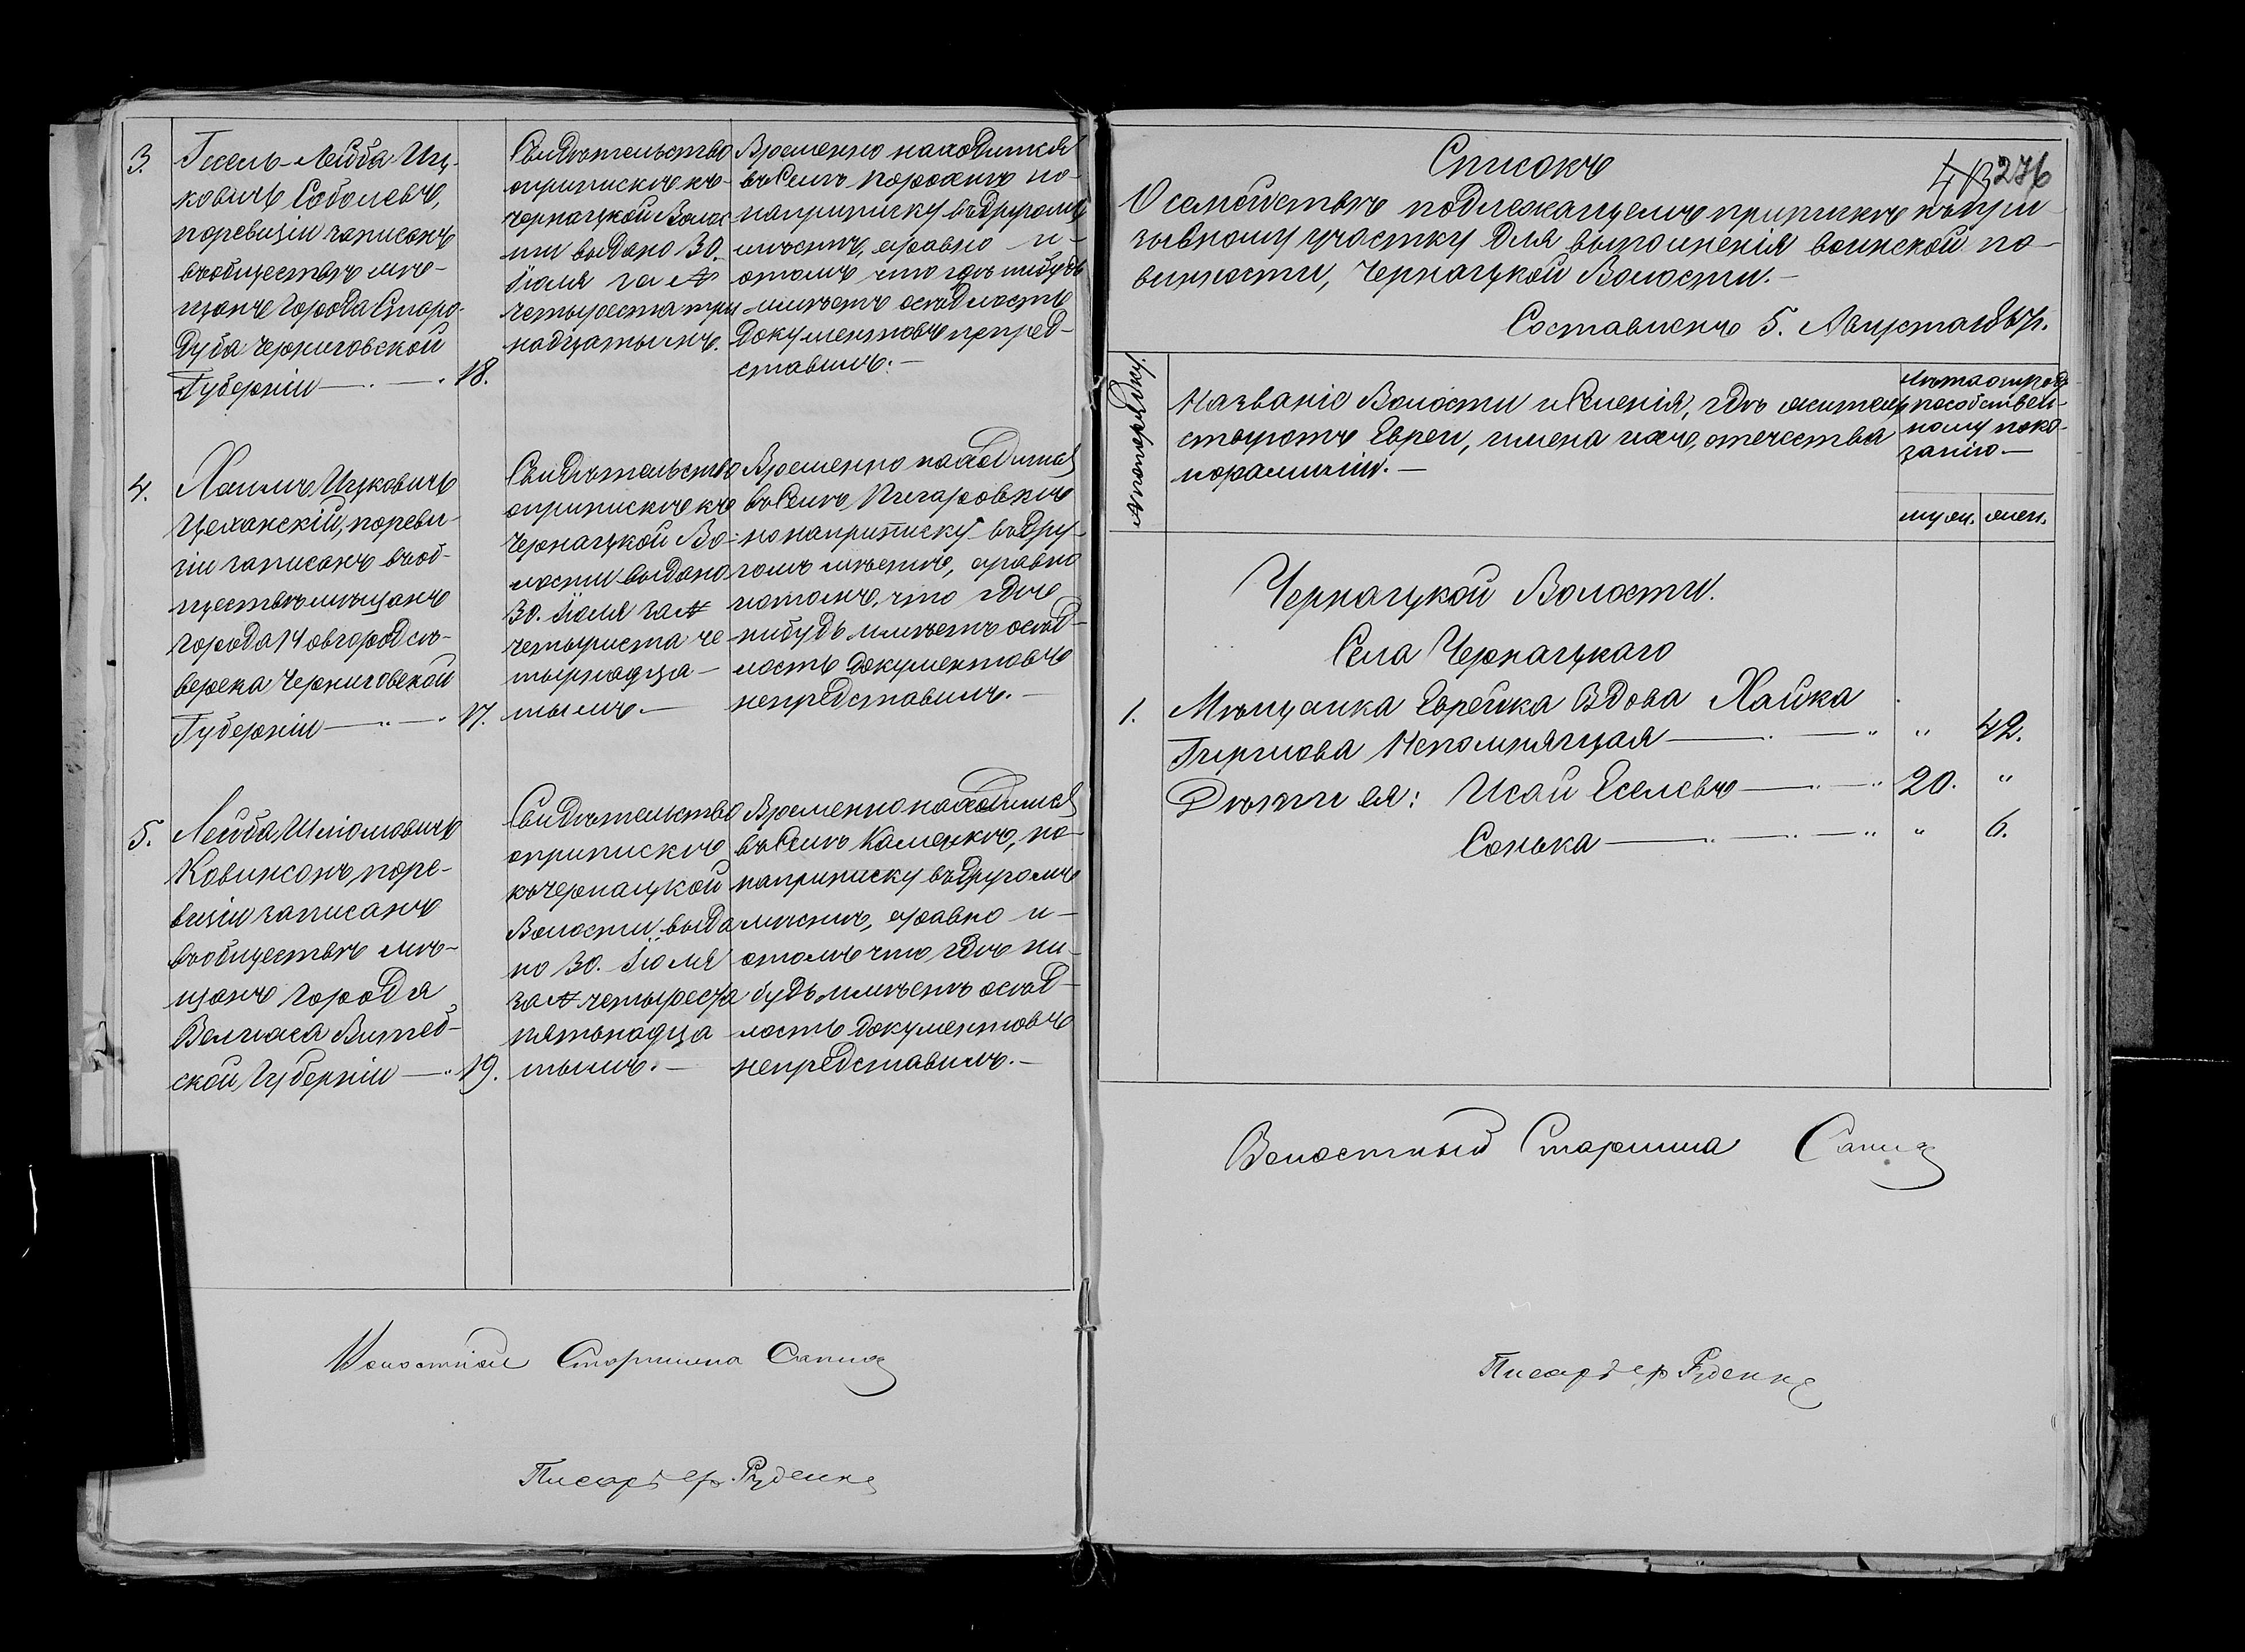 3.
Гисель-Лейба Иц-
ковичъ Соболевъ,
поревизіи записанъ
вобществѣ мѣ-
щанъ города Старо-
дуба Черниговской
Губерніи 18.
Свидѣтельство
оприпискѣ къ
Чернацкой Волос
ти выдано 30.
Іюля за №
четыреста три
надцатымъ.
Временно находится
въ Селѣ Порохнѣ но
наприписку въ другомъ
мѣстѣ, аравно и-
отомъ что гдѣ нибудь
имѣетъ осѣдлость
документовъ непред-
ставилъ.-
4.
Хаимъ Ицковичъ
Цеханскій, пореви-
зіи записанъ воб-
ществѣ мѣщанъ
города Новгородсѣ-
верска Черниговской
Губерніи 17.
Свидѣтельство
оприпискѣ къ
Чернацкой Во-
лости выдано
30. Іюля за №
четыриста че
тырнадца-
тымъ.-
Временно находится
въ Селѣ Пигаровкѣ
но наприписку въ дру-
гомъ мѣстѣ, аравно
иотомъ, что гдѣ
нибудь имѣетъ осѣд-
лость документовъ
непредставилъ.-
5.
Лейба Шліомовичъ
Ковинсонъ, поре-
визіи записанъ
вобществѣ мѣ-
щанъ города
Велижса Витеб-
ской Губерніи 19.
Свидѣтельство
оприпискѣ
къ Чернацкой
Волости выда
но 30. Іюля
за № четыреста
пятьнадца
тымъ.-
Временно находится
въ Селѣ Каменкѣ, но
наприписку въ другомъ
мѣстѣ, аравно и-
отомъ что гдѣ ни-
будь имѣетъ осѣд-
лость документовъ
непредставилъ.-
Волостной Старшина Сапига
Писарь Руденко
276
Списокъ
О семействѣ подлежащемъ припискѣ къ при
зывному участку для выполненія воинской по-
винности, Чернацкой Волости.-
Составленъ 5. Августа
№ попорядку.
Названіе Волости и Селенія, гдѣ жительствуютъ
Евреи, имена ихъ, отечества
ифамиліи.-
Лѣта отрода
пособствен-
ному пока-
занію.-
муж. жен.
Чернацкой Волости.
Села Чернацкаго
1. Мѣщанка Еврейка Вдова Хайка
Гиршова Непомнящая „ 42.
Дѣти ея: Исай Еселевъ 20. „
Сонька „ 6.
Волостный Старшина Сапига
Писарь Руденко